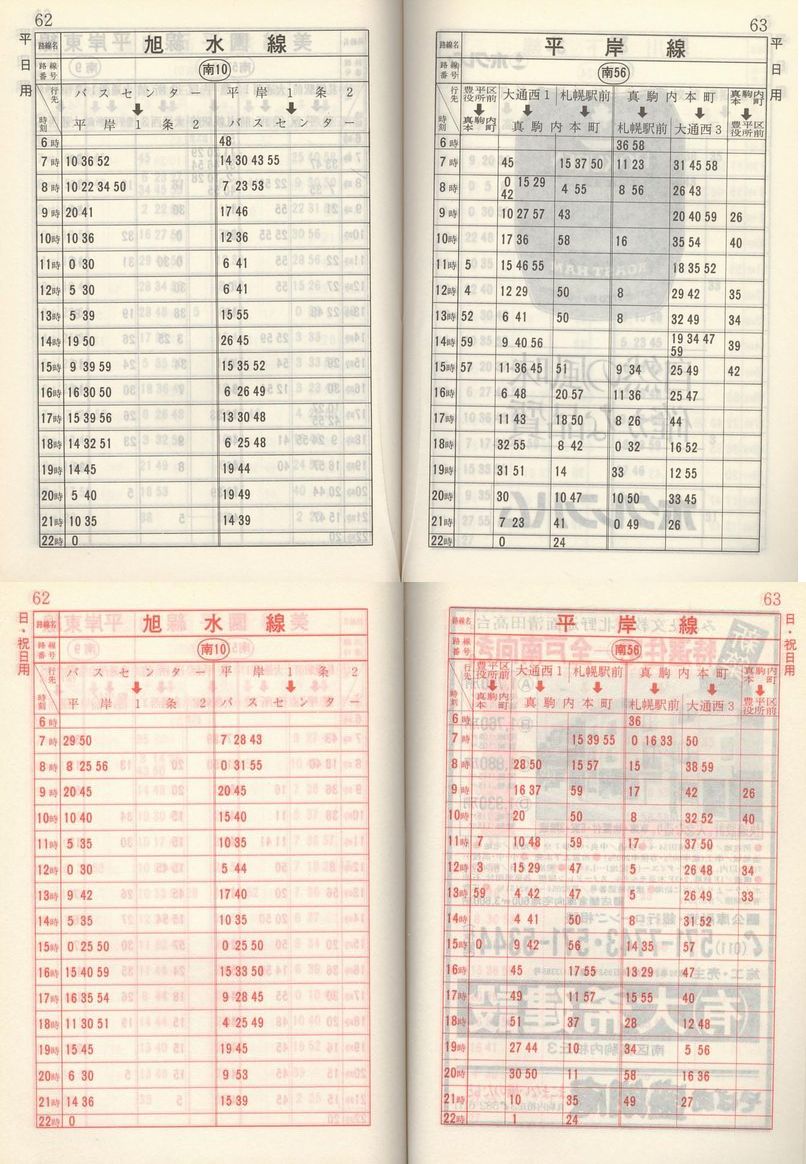 62
平日用
路線名 旭水線
路線番号 南10
行先 バスセンター 平岸1条2
時刻 平岸1条2 バスセンター
6時 48
7時 10 36 52 14 30 43 55
8時 10 22 34 50 7 23 53
9時 20 41 17 46
10時 10 36 12 36
11時 0 30 6 41
12時 5 30 6 41
13時 5 39 15 55
14時 19 50 26 45
15時 9 39 59 15 35 52
16時 16 30 50 6 26 49
17時 15 39 56 13 30 48
18時 14 32 51 6 25 48
19時 14 45 19 44
20時 5 40 19 49
21時 10 35 14 39
22時 0
63
平日用
路線名 平岸線
路線番号 南56
行先 豊平区役所前 大通西1 札幌駅前 真駒内本町 真駒内本町
時刻 真駒内本町 真駒内本町 札幌駅前 大通西3 豊平区役所前
6時 36 58
7時 45 15 37 50 11 23 31 45 58
8時 0 15 29 42 4 55 8 56 26 43
9時 10 27 57 43 20 40 59 26
10時 17 36 58 16 35 54 40
11時 5 15 46 55 18 35 52
12時 4 12 29 50 8 29 42 35
13時 52 6 41 50 8 32 49 34
14時 59 9 40 56 19 34 47 59 39
15時 57 11 36 45 51 9 34 25 49 42
16時 6 48 20 57 11 36 25 47
17時 11 43 18 50 8 26 44
18時 32 55 8 42 0 32 16 52
19時 31 51 14 33 12 55
20時 30 10 47 10 50 33 45
21時 7 23 41 0 49 26
22時 0 24
62
日・祝日用
路線名 旭水線
路線番号 南10
行先 バスセンター 平岸1条2
時刻 平岸1条2 バスセンター
6時
7時 29 50 7 28 43
8時 8 25 56 0 31 55
9時 20 45 20 45
10時 10 40 15 40
11時 5 35 10 35
12時 0 30 5 44
13時 9 42 17 40
14時 5 35 10 35
15時 0 25 50 0 25 50
16時 15 40 59 15 33 50
17時 16 35 54 9 28 45
18時 11 30 51 4 25 49
19時 15 45 19 45
20時 6 30 9 53
21時 14 36 15 39
22時 0
63
日・祝日用
路線名 平岸線
路線番号 南56
行先 豊平区役所前 大通西1 札幌駅前 真駒内本町 真駒内本町
時刻 真駒内本町 真駒内本町 札幌駅前 大通西3 豊平区役所前
6時 36
7時 15 39 55 0 16 33 50
8時 28 50 15 57 15 38 59
9時 16 37 59 17 42 26
10時 20 50 8 32 52 40
11時 7 10 48 59 17 37 50
12時 3 15 29 47 5 26 48 34
13時 59 4 42 47 5 26 49 33
14時 4 41 50 8 31 52
15時 0 9 42 56 14 35 57
16時 45 17 55 13 29 47
17時 49 11 57 15 55 40
18時 51 37 28 12 48
19時 27 44 10 34 5 56
20時 30 50 11 58 16 36
21時 10 35 49 27
22時 1 24